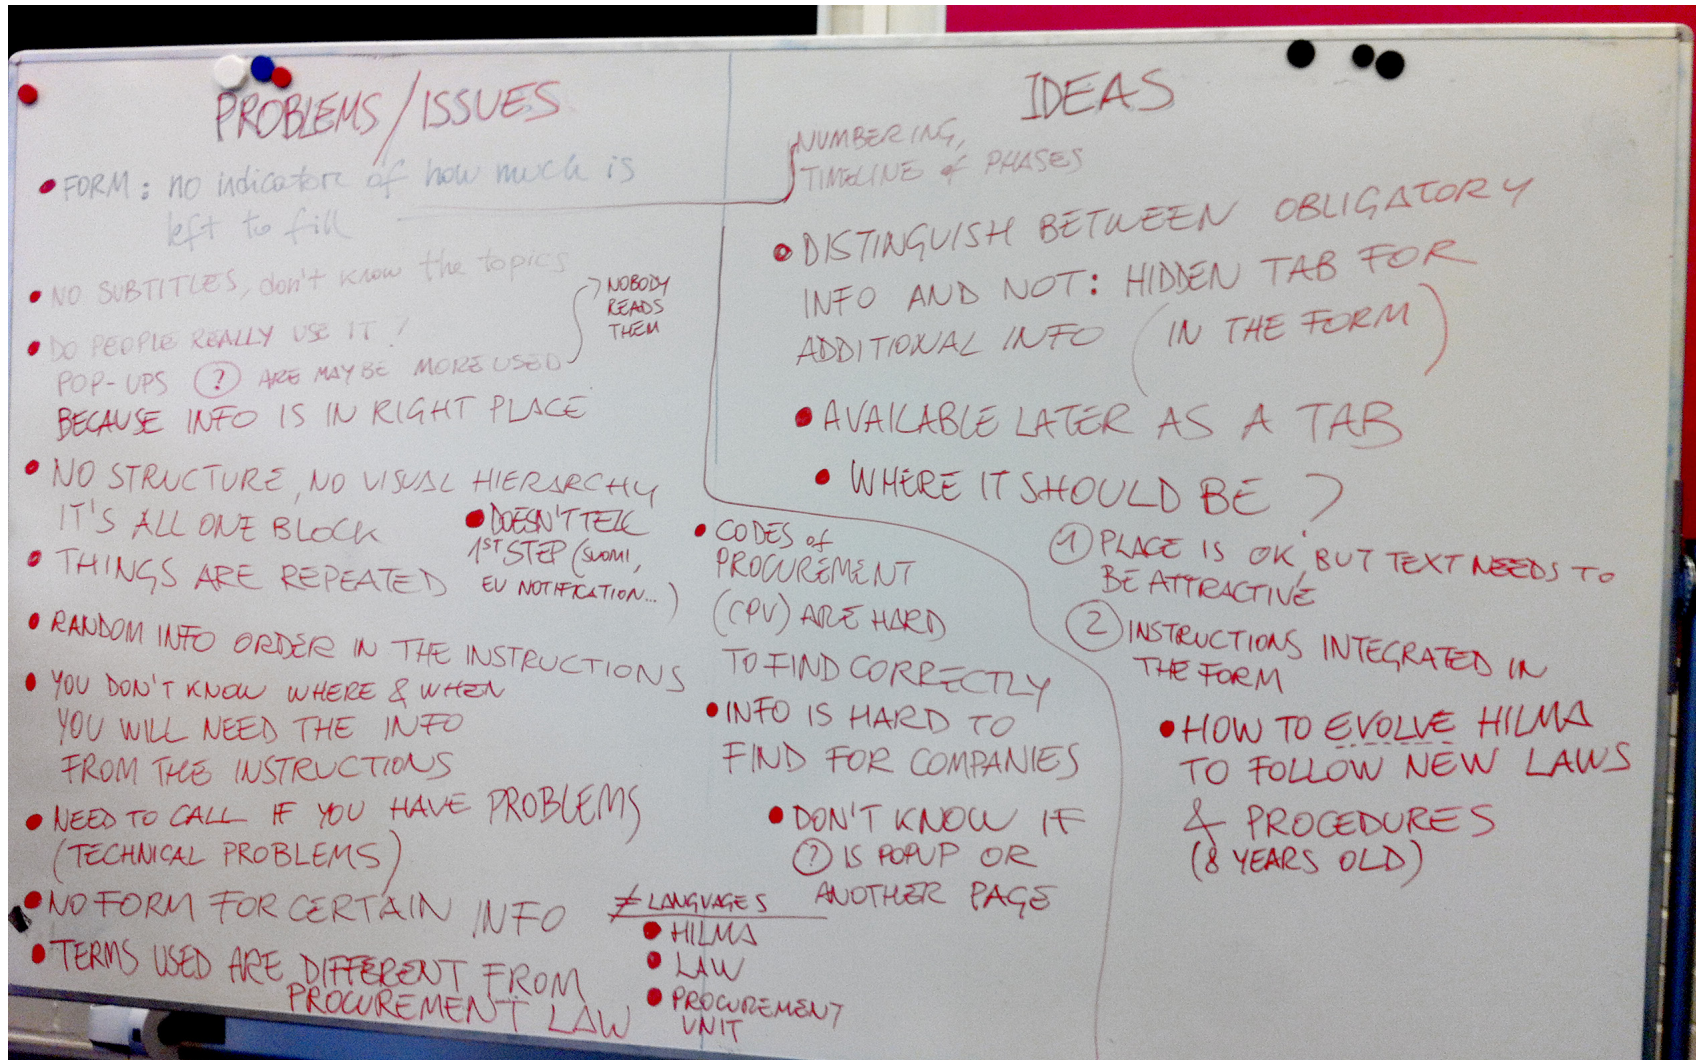 PROBLEMS/ISSUES
• FORM: no indicator of how much is
left to fill
• NO SUBTITLES, don't know the topics
• DO PEOPLE REALLY USE IT?
POP-UPS ? ARE MAYBE MORE USED
BECAUSE INFO IS IN RIGHT PLACE
NOBODY
READS
THEM
• NO STRUCTURE, NO VISUAL HIERARCHY
IT'S ALL ONE BLOCK
• DOESN'T TELL
1ST STEP (SUOMI,
EU NOTIFICATION...)
• THINGS ARE REPEATED
• RANDOM INFO ORDER IN THE INSTRUCTIONS
• YOU DON'T KNOW WHERE & WHEN
YOU WILL NEED THE INFO
FROM THE INSTRUCTIONS
• NEED TO CALL IF YOU HAVE PROBLEMS
(TECHNICAL PROBLEMS)
• NO FORM FOR CERTAIN INFO
• TERMS USED ARE DIFFERENT FROM
PROCUREMENT LAW
≠ LANGUAGES
• HILMA
• LAW
• PROCUREMENT
UNIT
• CODES of
PROCUREMENT
(CPV) ARE HARD
TO FIND CORRECTLY
• INFO IS HARD TO
FIND FOR COMPANIES
• DON'T KNOW IF
? IS POPUP OR
ANOTHER PAGE
IDEAS
NUMBERING,
TIMELINE of PHASES
• DISTINGUISH BETWEEN OBLIGATORY
INFO AND NOT: HIDDEN TAB FOR
ADDITIONAL INFO (IN THE FORM)
• AVAILABLE LATER AS A TAB
• WHERE IT SHOULD BE?
1 PLACE IS OK, BUT TEXT NEEDS TO
BE ATTRACTIVE
2 INSTRUCTIONS INTEGRATED IN
THE FORM
• HOW TO EVOLVE HILMA
TO FOLLOW NEW LAWS
& PROCEDURES
(8 YEARS OLD)